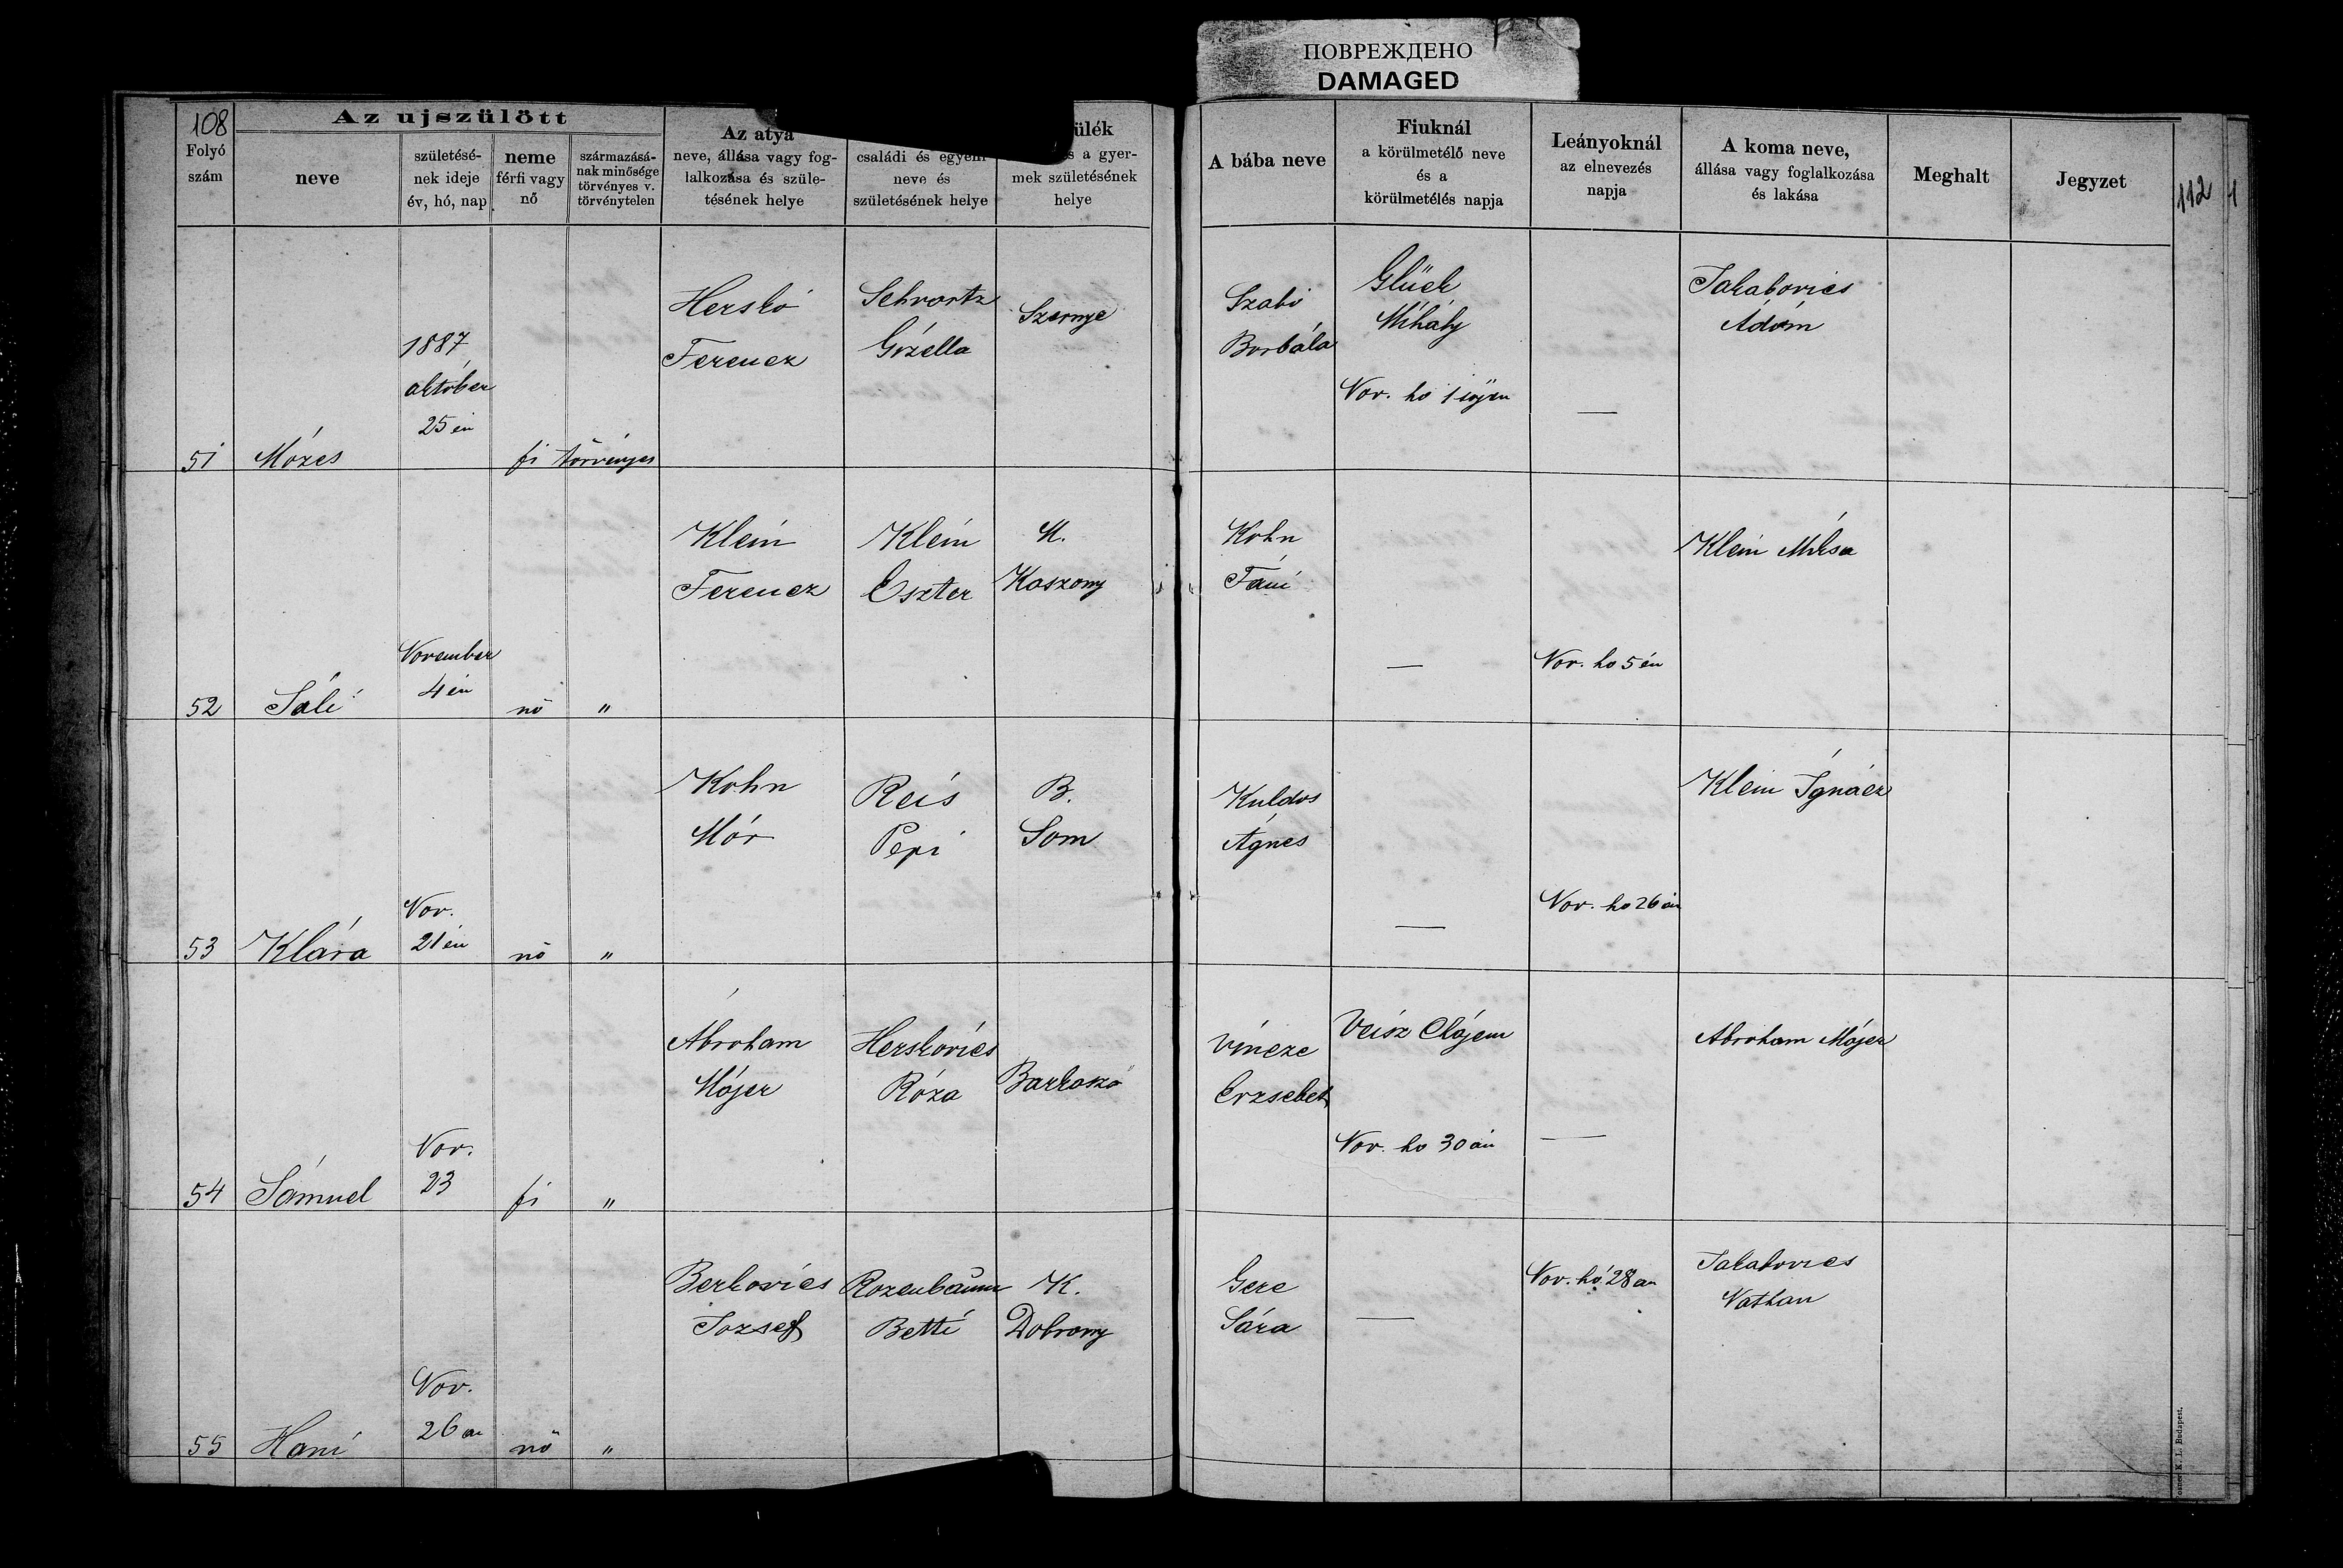 ПОВРЕЖДЕНО
DAMAGED
108
Folyó
szám
Az ujszülött
neve
születésé-
nek ideje
év, hó, nap
neme
férfi vagy
nő
származásá-
nak minősége
törvényes v.
törvénytelen
Az atya
neve, állása vagy fog-
lalkozása és szüle-
tésének helye
családi és egyéni
neve és
születésének helye
ülék
s a gyer-
mek születésének
helye
A bába neve
Fiuknál
a körülmetélő neve
és a
körülmetélés napja
Leányoknál
az elnevezés
napja
A koma neve,
állása vagy foglalkozása
és lakása
Meghalt
Jegyzet
112
1
51
Mózes
1887
október
25 én
fi
törvényes
Herskó
Ferencz
Schvartz
Gizella
Szernye
Szabó
Borbála
Glück
Mihály
Nov. ho 1 iöjén
—
Jakabovics
Ádám
52
Sáli
November
4 én
nő
"
Klein
Ferencz
Klein
Eszter
M.
Kaszony
Kohn
Fáni
—
Nov. ho 5 én
Klein Miksa
53
Klára
Nov.
21 én
nő
"
Kohn
Mór
Reis
Pepi
B.
Som
Kuldos
Ágnes
—
Nov. ho 26 án
Klein Ignácz
54
Sámuel
Nov.
23
fi
"
Ábrohám
Májer
Herskovics
Róza
Barkaszó
Vincze
Erzsebet
Veisz Chájem
Nov. ho 30 án
—
Abrohám Májer
55
Hani
Nov.
26 án
nő
"
Berkovics
Jozsef
Rozenbaum
Betti
K.
Dobrony
Gere
Sára
—
Nov. hó 28 an
Jakabovics
Nathan
K. L. Budapest.